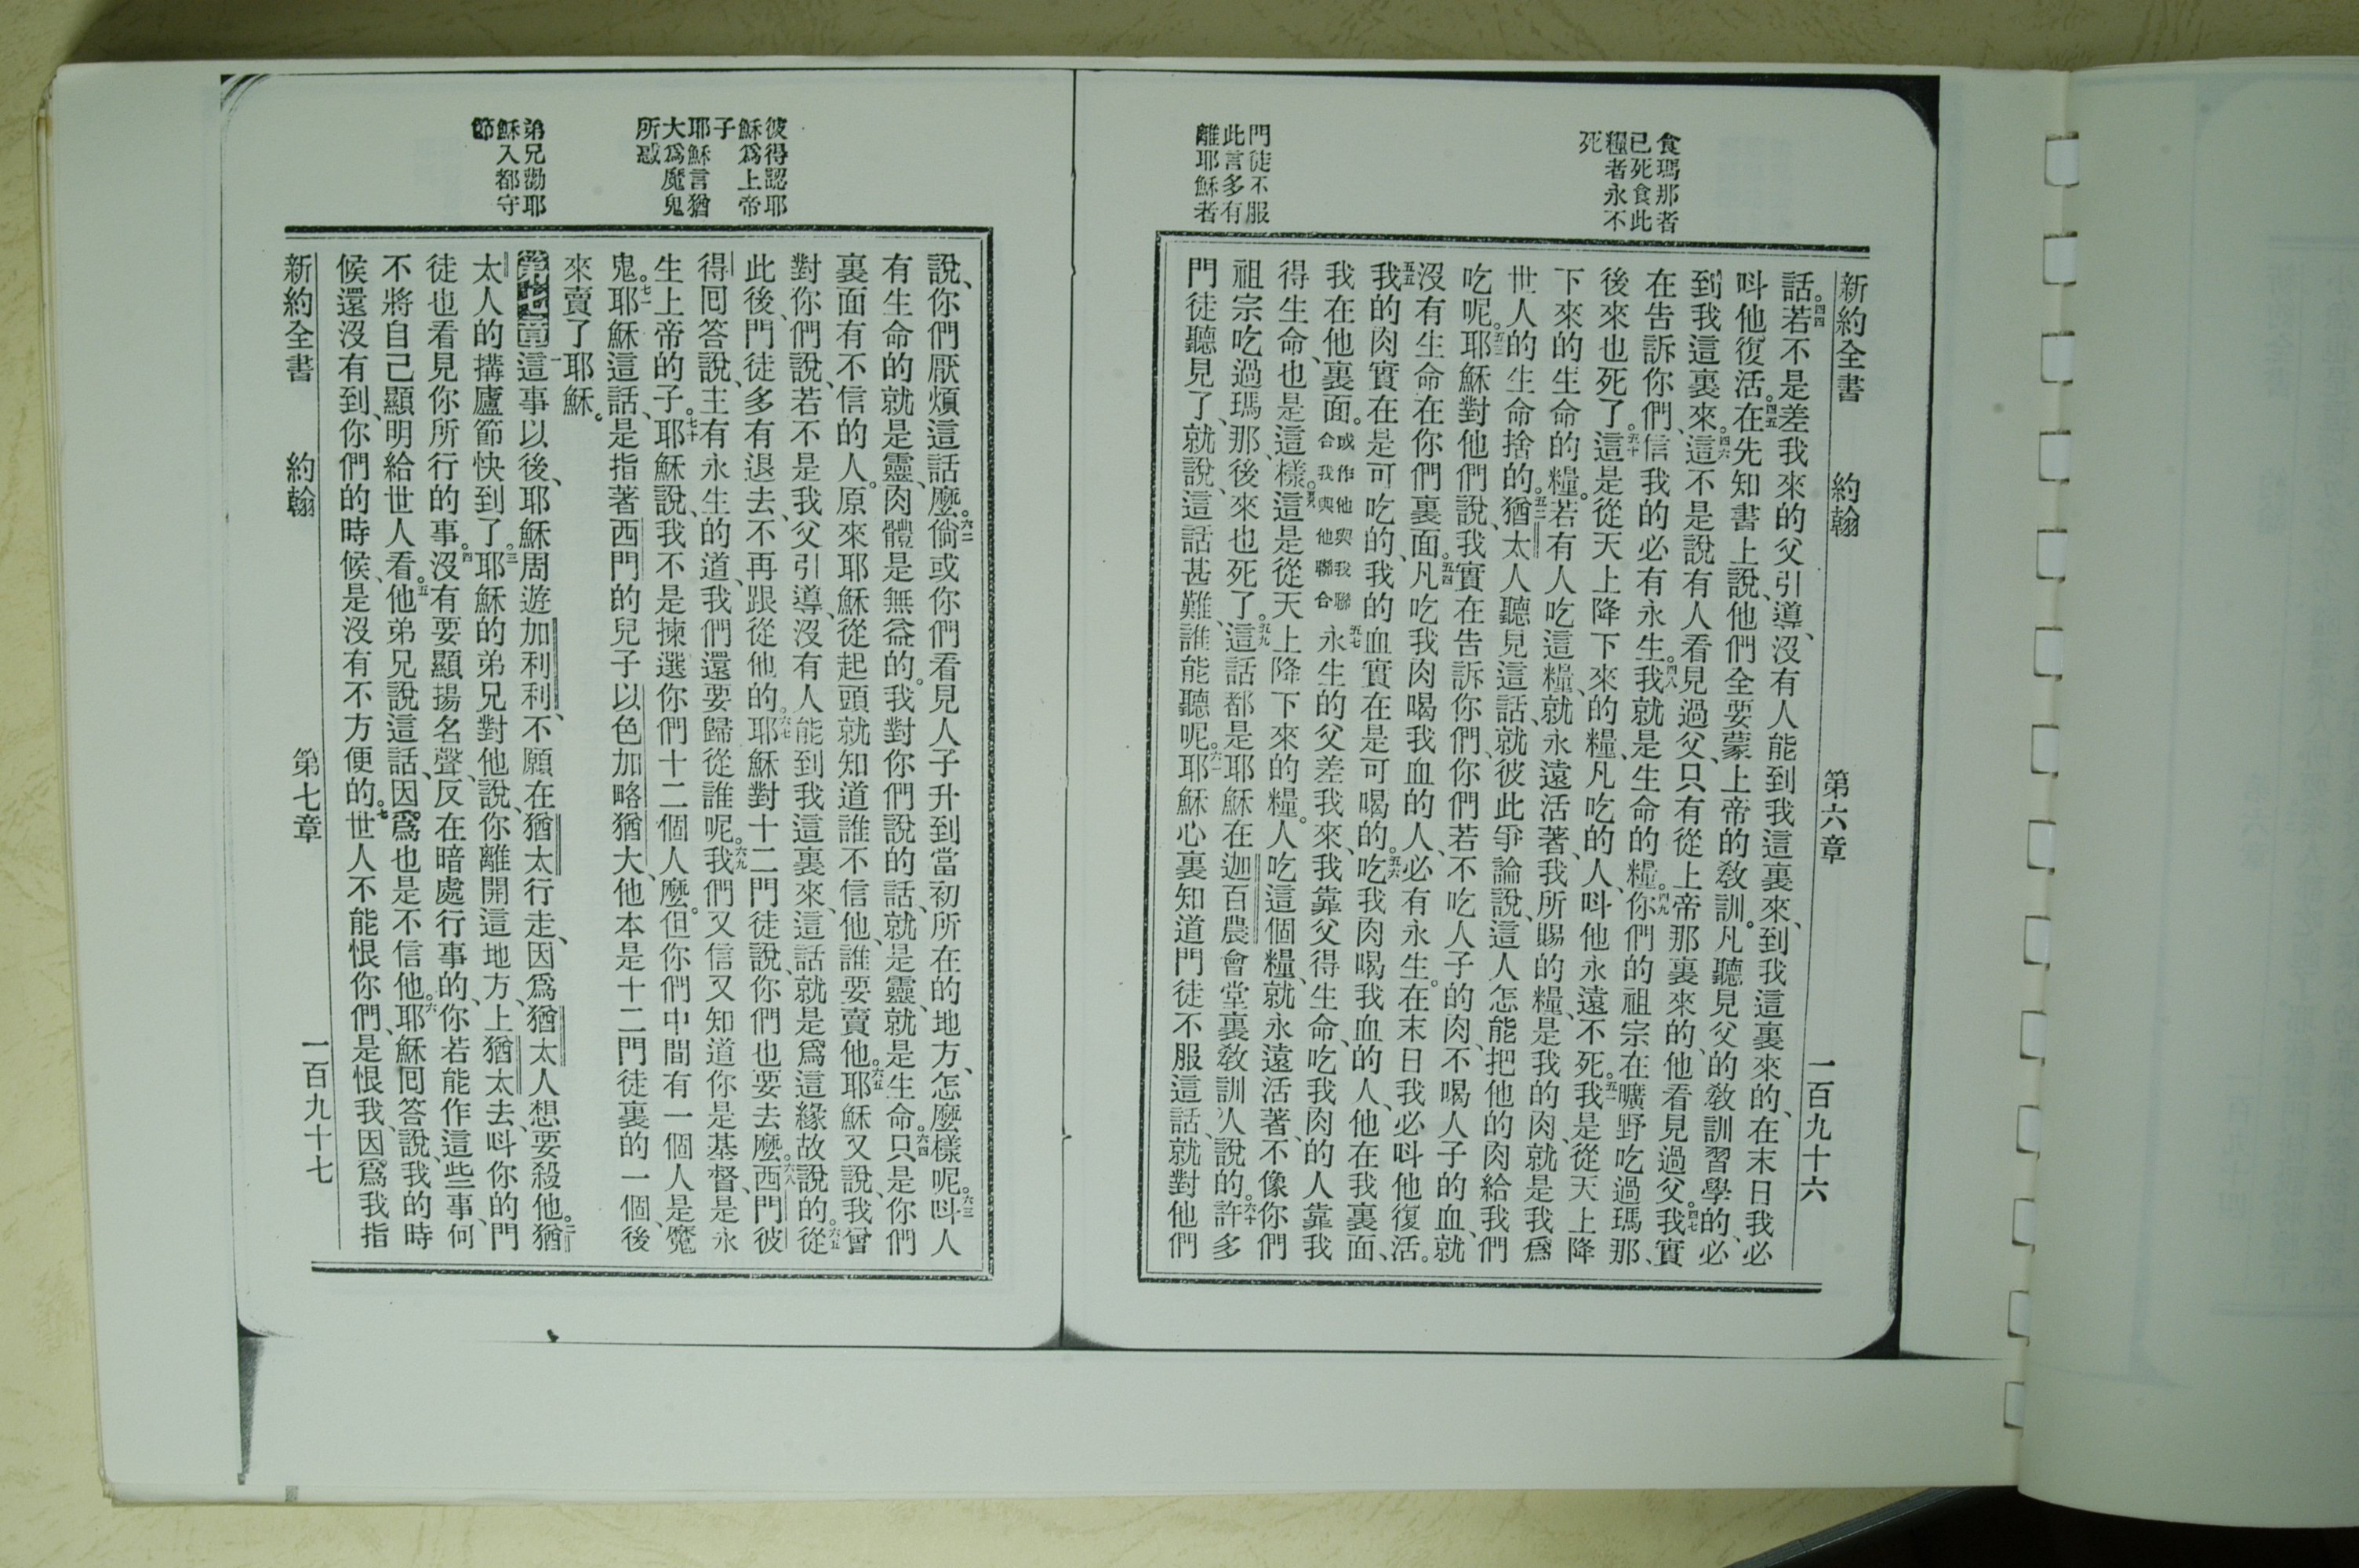 食瑪那者
已死食此
糧者永不
死
門徒不服
此言多有
離耶穌者
新約全書 約翰 第六章 一百九十六
話。四四若不是差我來的父引導、沒有人能到我這裏來、到我這裏來的、在末日我必
呌他復活。四五在先知書上說、他們全要蒙上帝的敎訓。凡聽見父的敎訓習學的、必
到我這裏來。四六這不是說有人看見過父、只有從上帝那裏來的、他看見過父。四七我實
在告訴你們、信我的必有永生。四八我就是生命的糧。四九你們的祖宗在曠野吃過瑪那、
後來也死了。五十這是從天上降下來的糧、凡吃的人、呌他永遠不死。五一我是從天上降
下來的生命的糧。若有人吃這糧、就永遠活著、我所賜的糧、是我的肉、就是我爲
世人的生命捨的。五二猶太人聽見這話、就彼此爭論說、這人怎能把他的肉給我們
吃呢。五三耶穌對他們說、我實在告訴你們、你們若不吃人子的肉、不喝人子的血、就
沒有生命在你們裏面。五四凡吃我肉喝我血的人、必有永生。在末日我必呌他復活。
五五我的肉實在是可吃的、我的血實在是可喝的。五六吃我肉喝我血的人、他在我裏面、
我在他裏面。或作他與我聯合我與他聯合五七永生的父差我來、我靠父得生命、吃我肉的人靠我
得生命、也是這樣。五八這是從天上降下來的糧。人吃這個糧、就永遠活著、不像你們
祖宗吃過瑪那、後來也死了。五九這話都是耶穌在迦百農會堂裏敎訓人說的。六十許多
門徒聽見了、就說、這話甚難、誰能聽呢。六一耶穌心裏知道門徒不服這話、就對他們
彼得認耶
穌爲上帝
子
耶穌言猶
大爲魔鬼
所惑
弟兄勸耶
穌入都守
節
說、你們厭煩這話麼。六二倘或你們看見人子升到當初所在的地方、怎麼樣呢。六三呌人
有生命的就是靈、肉體是無益的。我對你們說的話、就是靈、就是生命。六四只是你們
裏面有不信的人。原來耶穌從起頭就知道誰不信他、誰要賣他。六五耶穌又說、我曾
對你們說、若不是我父引導、沒有人能到我這裏來、這話就是爲這緣故說的。六六從
此後、門徒多有退去、不再跟從他的。六七耶穌對十二門徒說、你們也要去麼。六八西門彼
得囘答說、主有永生的道、我們還要歸從誰呢。六九我們又信又知道你是基督、是永
生上帝的子。七十耶穌說、我不是揀選你們十二個人麼。但你們中間有一個人是魔
鬼。七一耶穌這話、是指著西門的兒子以色加略猶大、他本是十二門徒裏的一個、後
來賣了耶穌。
第七章 一這事以後、耶穌周遊加利利、不願在猶太行走、因爲猶太人想要殺他。二猶
太人的搆廬節快到了。三耶穌的弟兄對他說、你離開這地方、上猶太去、呌你的門
徒也看見你所行的事。四沒有要顯揚名聲、反在暗處行事的、你若能作這些事、何
不將自己顯明給世人看。五他弟兄說這話、因爲也是不信他。六耶穌囘答說、我的時
候還沒有到、你們的時候、是沒有不方便的。七世人不能恨你們、是恨我、因爲我指
新約全書 約翰 第七章 一百九十七